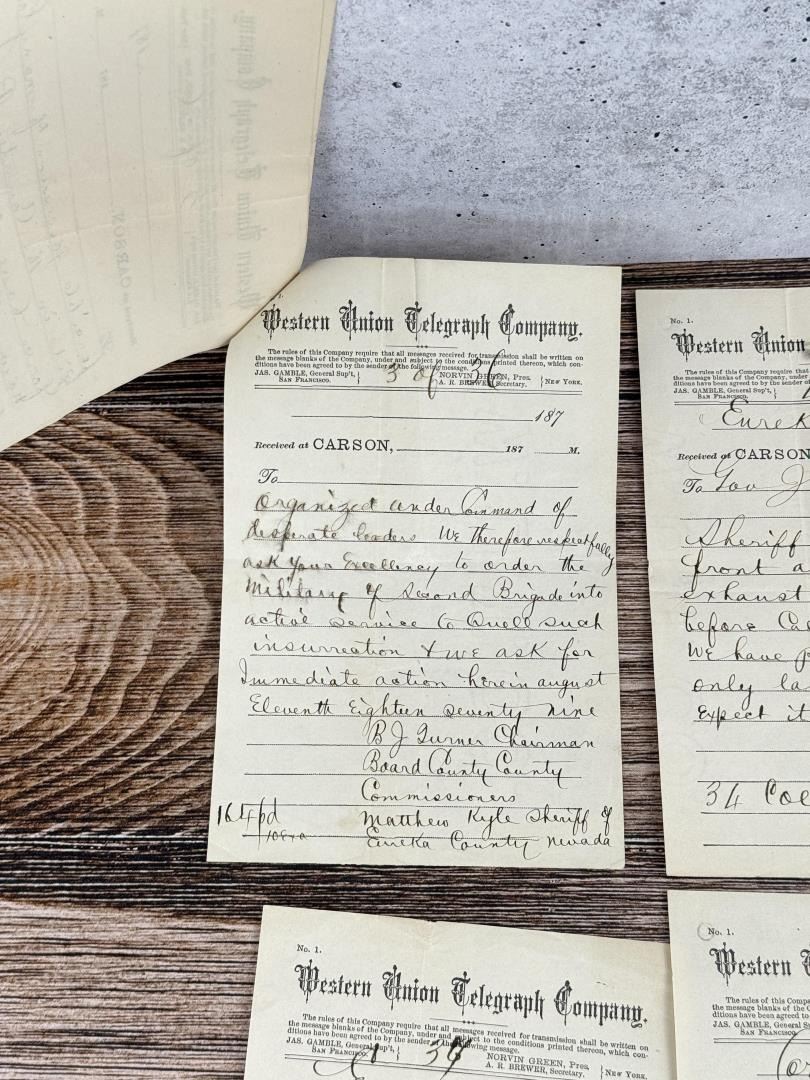 Western Union Telegraph Company.
The rules of this Company require that all messages received for transmission shall be written on
the message blanks of the Company, under and subject to the conditions printed thereon, which con-
ditions have been agreed to by the sender of the following message.
JAS. GAMBLE, General Sup't, SAN FRANCISCO. NORVIN GREEN, Pres. A. R. BREWER, Secretary. NEW YORK.
3 of 36
187
Received at CARSON, 187 M.
To
Organized under Command of
desperate leaders We therefore respectfully
ask your Excellency to order the
Military of Second Brigade into
active service to Quell such
insurrection & we ask for
Immediate action herein august
Eleventh Eighteen seventy nine
B J Turner Chairman
Board County County
Commissioners
Matthew Kyle Sheriff of
Eureka County nevada
164pd
No. 1.
Western Union
The rules of this Company require that
the message blanks of the Company, under an
ditions have been agreed to by the sender o
JAS. GAMBLE, General Sup't,
SAN FRANCISCO.
Eurek
Received at CARSON
To Gov J
Sheriff
front a
exhaust
before Ca
We have p
only la
Expect it
34 Coe
No. 1.
Western Union Telegraph Company.
The rules of this Company require that all messages received for transmission shall be written on
the message blanks of the Company, under and subject to the conditions printed thereon, which con-
ditions have been agreed to by the sender of the following message.
JAS. GAMBLE, General Sup't, SAN FRANCISCO. NORVIN GREEN, Pres. A. R. BREWER, Secretary. NEW YORK.
No. 1.
Western
The rules of this Compan
the message blanks of the Co
ditions have been agreed to
JAS. GAMBLE, General Sup
SAN FRANCISCO.